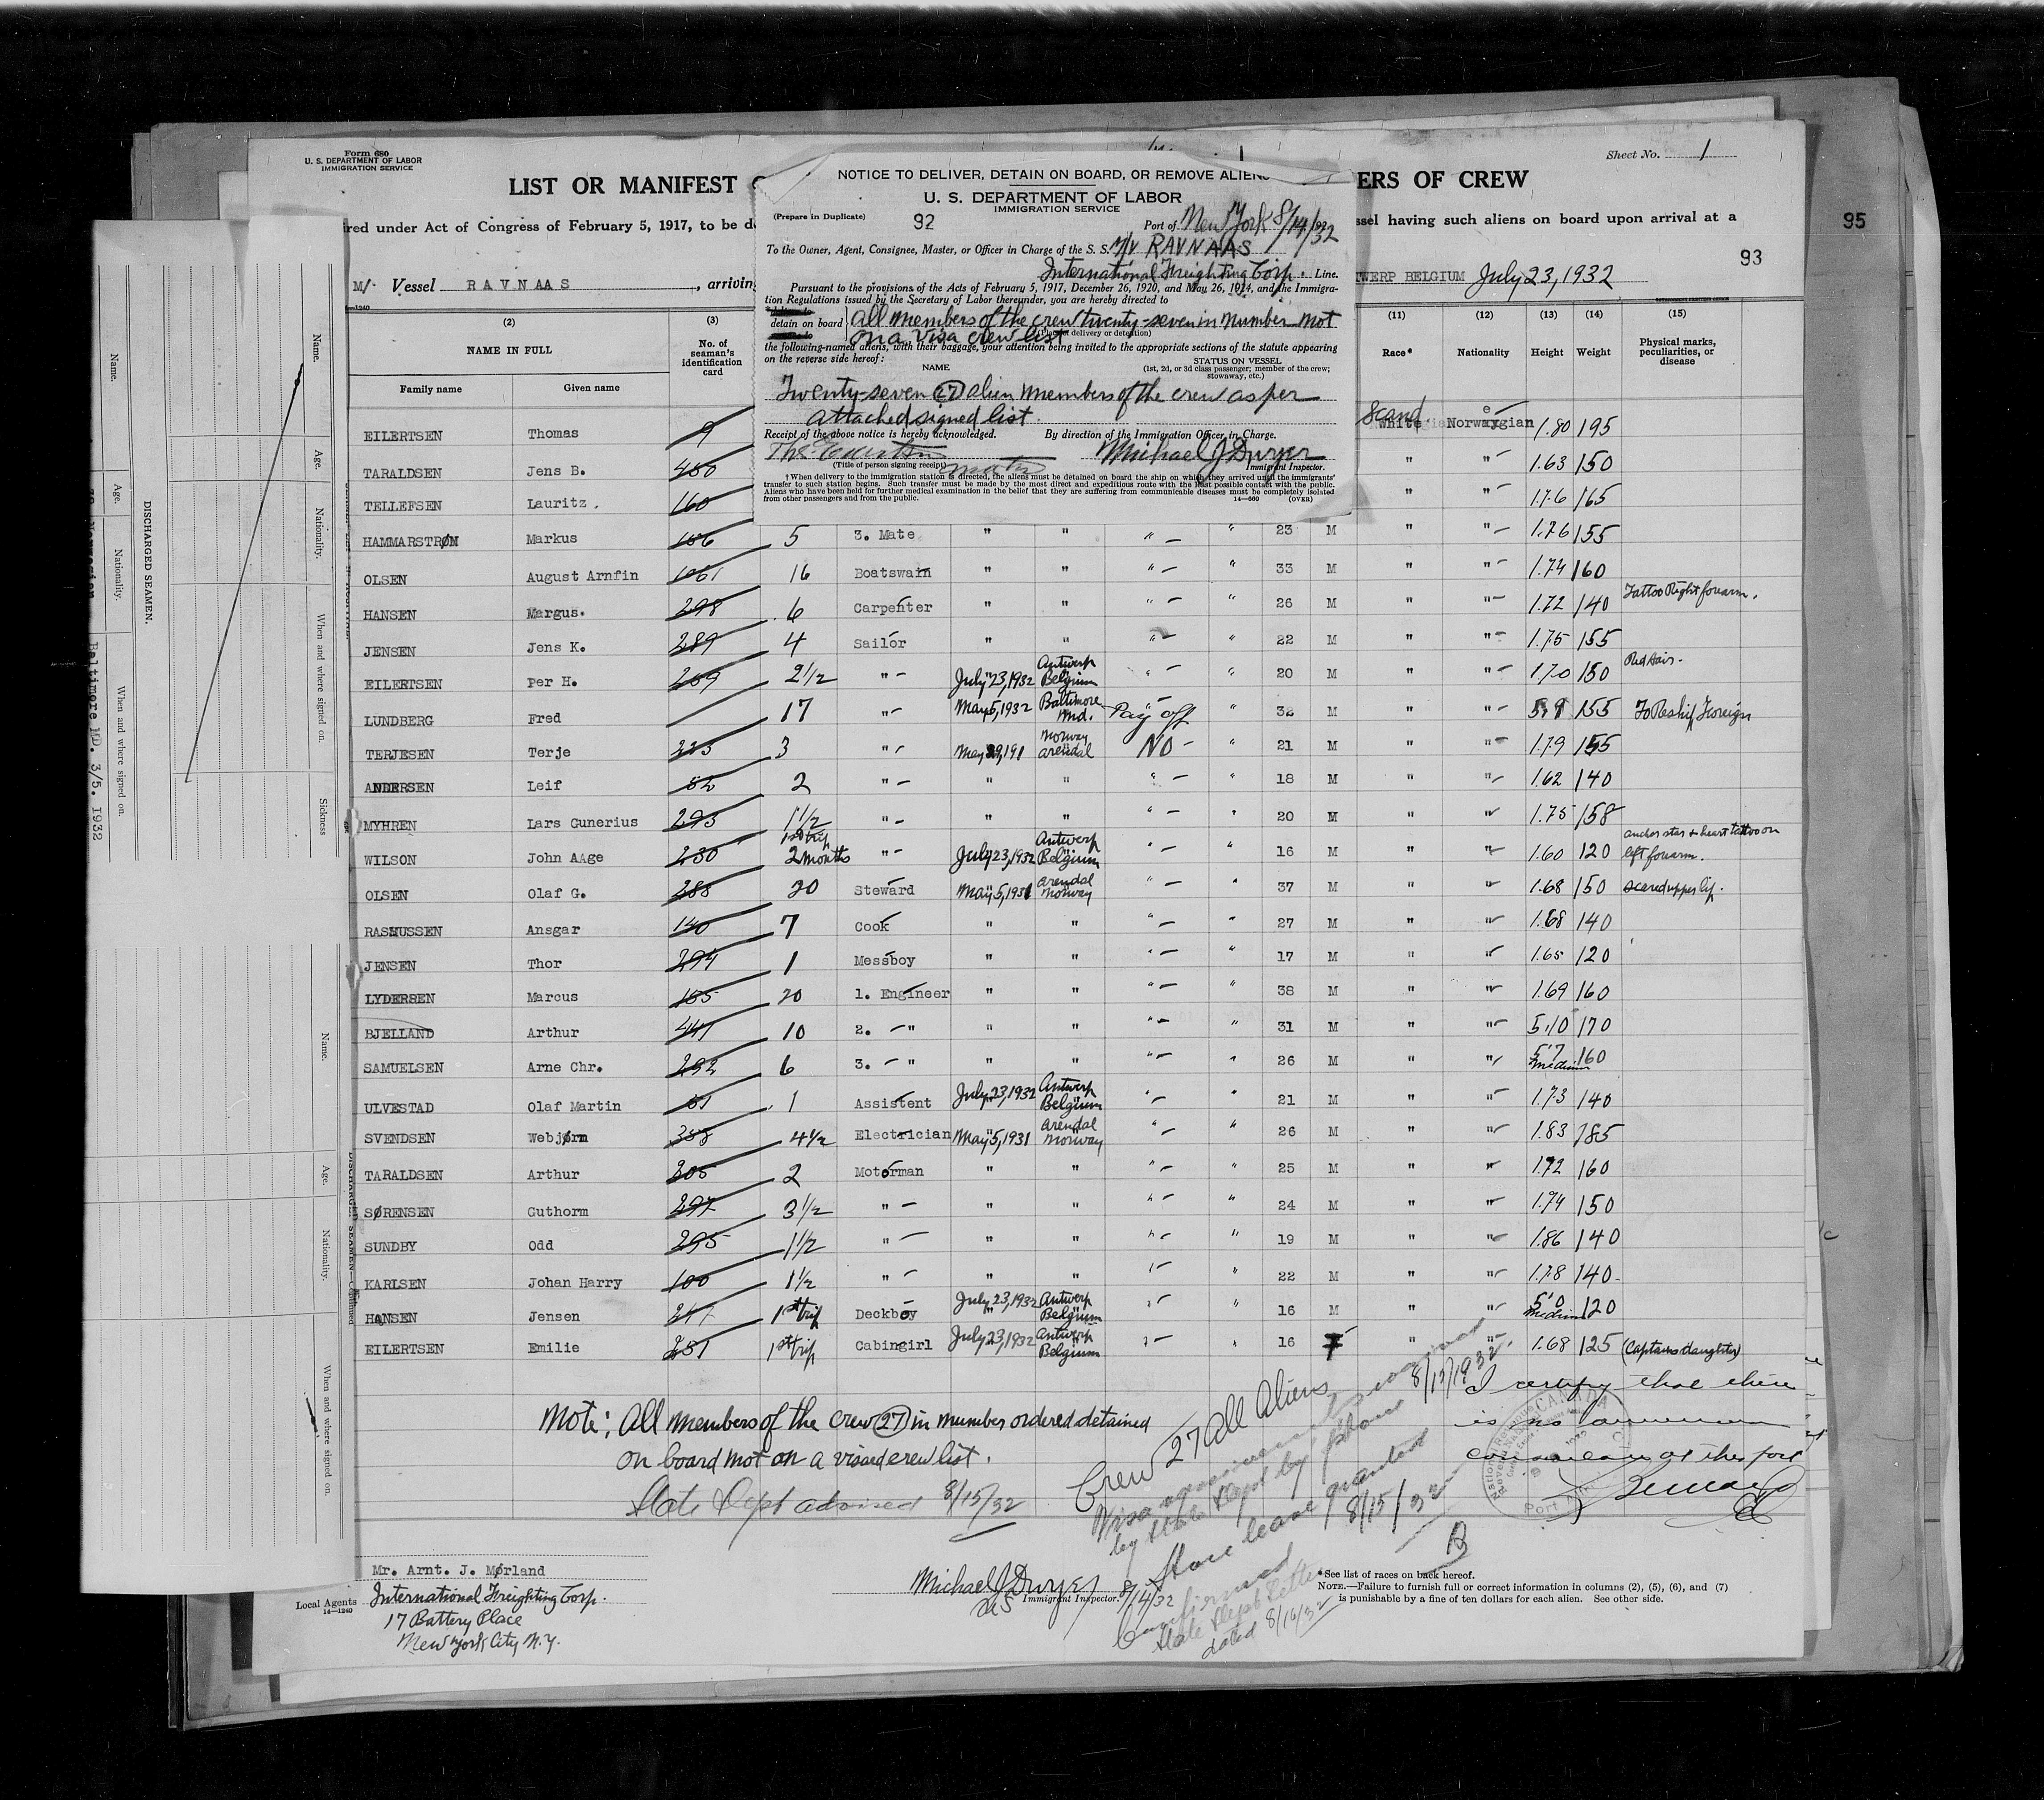 Form 680
U. S. DEPARTMENT OF LABOR
IMMIGRATION SERVICE
Sheet No. 1
LIST OR MANIFEST
ERS OF CREW
red under Act of Congress of February 5, 1917, to be de
ssel having such aliens on board upon arrival at a
95
93
M/· Vessel RAVNAAS, arriving
TWERP BELGIUM July 23, 1932
NOTICE TO DELIVER, DETAIN ON BOARD, OR REMOVE ALIENS
U. S. DEPARTMENT OF LABOR
IMMIGRATION SERVICE
(Prepare in Duplicate)
92
Port of New York 8/14/32
To the Owner, Agent, Consignee, Master, or Officer in Charge of the S. S. M/V RAVNAAS
International Freighting Corp. Line.
Pursuant to the provisions of the Acts of February 5, 1917, December 26, 1920, and May 26, 1924, and the Immigra-
tion Regulations issued by the Secretary of Labor thereunder, you are hereby directed to
detain on board All members of the crew twenty-seven in number not
on a visa crew list
(Place of delivery or detention)
the following-named aliens, with their baggage, your attention being invited to the appropriate sections of the statute appearing
on the reverse side hereof:
NAME
STATUS ON VESSEL
(1st, 2d, or 3d class passenger; member of the crew;
stowaway, etc.)
Twenty-seven (27) alien members of the crew as per
attached signed list.
Receipt of the above notice is hereby acknowledged. By direction of the Immigration Officer in Charge.
Michael J Dwyer
(Title of person signing receipt) master
Immigrant Inspector.
† When delivery to the immigration station is directed, the aliens must be detained on board the ship on which they arrived until the immigrants'
transfer to such station begins. Such transfer must be made by the most direct and expeditious route with the least possible contact with the public.
Aliens who have been held for further medical examination in the belief that they are suffering from communicable diseases must be completely isolated
from other passengers and from the public.
14—660 (OVER)
(2) (3) (11) (12) (13) (14) (15)
NAME IN FULL
No. of seaman's identification card
Race* Nationality Height Weight Physical marks, peculiarities, or disease
Family name Given name
EILERTSEN Thomas 9 Scand White Norwegian 1.80 195
TARALDSEN Jens B. 460 " " 1.63 150
TELLEFSEN Lauritz. 160 " " 1.76 165
HAMMARSTRØM Markus 106 5 3. Mate " " " " 23 M " " 1.76 155
OLSEN August Arnfin 1061 16 Boatswain " " " " 33 M " " 1.74 160
HANSEN Margus. 298 6 Carpenter " " " " 26 M " " 1.72 140 Tattoo Right forearm.
JENSEN Jens K. 289 4 Sailor " " " " 22 M " " 1.75 155
EILERTSEN Per H. 269 2½ " July 23, 1932 Antwerp Belgium " " 20 M " " 1.70 150 Red hair.
LUNDBERG Fred 17 " May 5, 1932 Baltimore Md. Pay off " 32 M " " 5,9 155 To Reship Foreign
TERJESEN Terje 223 3 " Norway Arendal NO " 21 M " " 1.79 155
ANDERSEN Leif 52 2 " " " " " 18 M " " 1.62 140
MYHREN Lars Gunerius 293 1½ " " " " " 20 M " " 1.75 158
WILSON John Aage 230 1st trip 2 months " July 23, 1932 Antwerp Belgium " " 16 M " " 1.60 120 anchor star & heart tattoo on left forearm.
OLSEN Olaf G. 288 20 Steward May 5, 1931 Arendal Norway " " 37 M " " 1.68 150 scared upper lip.
RASMUSSEN Ansgar 140 7 Cook " " " " 27 M " " 1.68 140
JENSEN Thor 294 1 Messboy " " " " 17 M " " 1.65 120
LYDERSEN Marcus 165 20 1. Engineer " " " " 38 M " " 1.69 160
BJELLAND Arthur 441 10 2. " " " " " 31 M " " 5,10 170
SAMUELSEN Arne Chr. 292 6 3. " " " " " 26 M " " 5'7 medium 160
ULVESTAD Olaf Martin 61 1 Assistent July 23, 1932 Antwerp Belgium " " 21 M " " 1.73 140
SVENDSEN Webjørn 358 4½ Electrician May 5, 1931 Arendal Norway " " 26 M " " 1.83 185
TARALDSEN Arthur 305 2 Motorman " " " " 25 M " " 1.72 160
SØRENSEN Guthorm 297 3½ " " " " " 24 M " " 1.74 150
SUNDBY Odd 295 1½ " " " " " 19 M " " 1.86 140
KARLSEN Johan Harry 100 1½ " " " " " 22 M " " 1.78 140
HANSEN Jensen 247 1st trip Deckboy July 23, 1932 Antwerp Belgium " " 16 M " " 5'0 medium 120
EILERTSEN Emilie 251 1st trip Cabingirl July 23, 1932 Antwerp Belgium " " 16 F " " 1.68 125 (Captains daughter)
Note: All members of the crew (27) in number ordered detained
on board not on a visaed crew list.
State Dept advised 8/15/32
Crew 27 all Aliens
by State Dept by phone 8/15/1932
Shore leave granted 8/15/32
Confirmed
State Dept letter
dated 8/16/32
I certify that there
is no American
consular at this port
CANADA
Mr. Arnt. J. Mørland
Local Agents International Freighting Corp.
17 Battery Place
New York City N.Y.
14—1240
Michael J Dwyer 8/14/32
Immigrant Inspector.
*See list of races on back hereof.
NOTE.—Failure to furnish full or correct information in columns (2), (5), (6), and (7)
is punishable by a fine of ten dollars for each alien. See other side.
DISCHARGED SEAMEN.
Name. Age. Nationality. When and where signed on.
Baltimore MD. 3/5. 1932
Name. Age. Nationality. When and where signed on. Sickness
DISCHARGED SEAMEN—Continued
Name. Age. Nationality. When and where signed on.